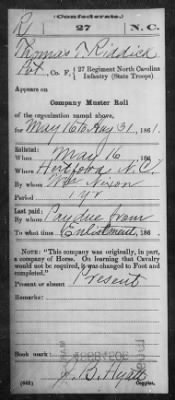 (Confederate.)
R 27 N. C.
Thomas T. Riddick
Pvt., Co. F, 27 Regiment North Carolina
Infantry (State Troops)
Appears on
Company Muster Roll
of the organization named above,
for May 16 to Aug 31, 1861.
Enlisted:
When May 16, 186
Where Hertford N.C.
By whom Wm Nixon
Period 1 yr
Last paid:
By whom Pay due from
To what time Enlistment, 186
NOTE: "This company was originally, in part,
a company of Horse. On learning that Cavalry
would not be required, it was changed to Foot and
completed."
Present or absent Present
Remarks:
Book mark:
J. B. Hyatt
(642) Copyist.